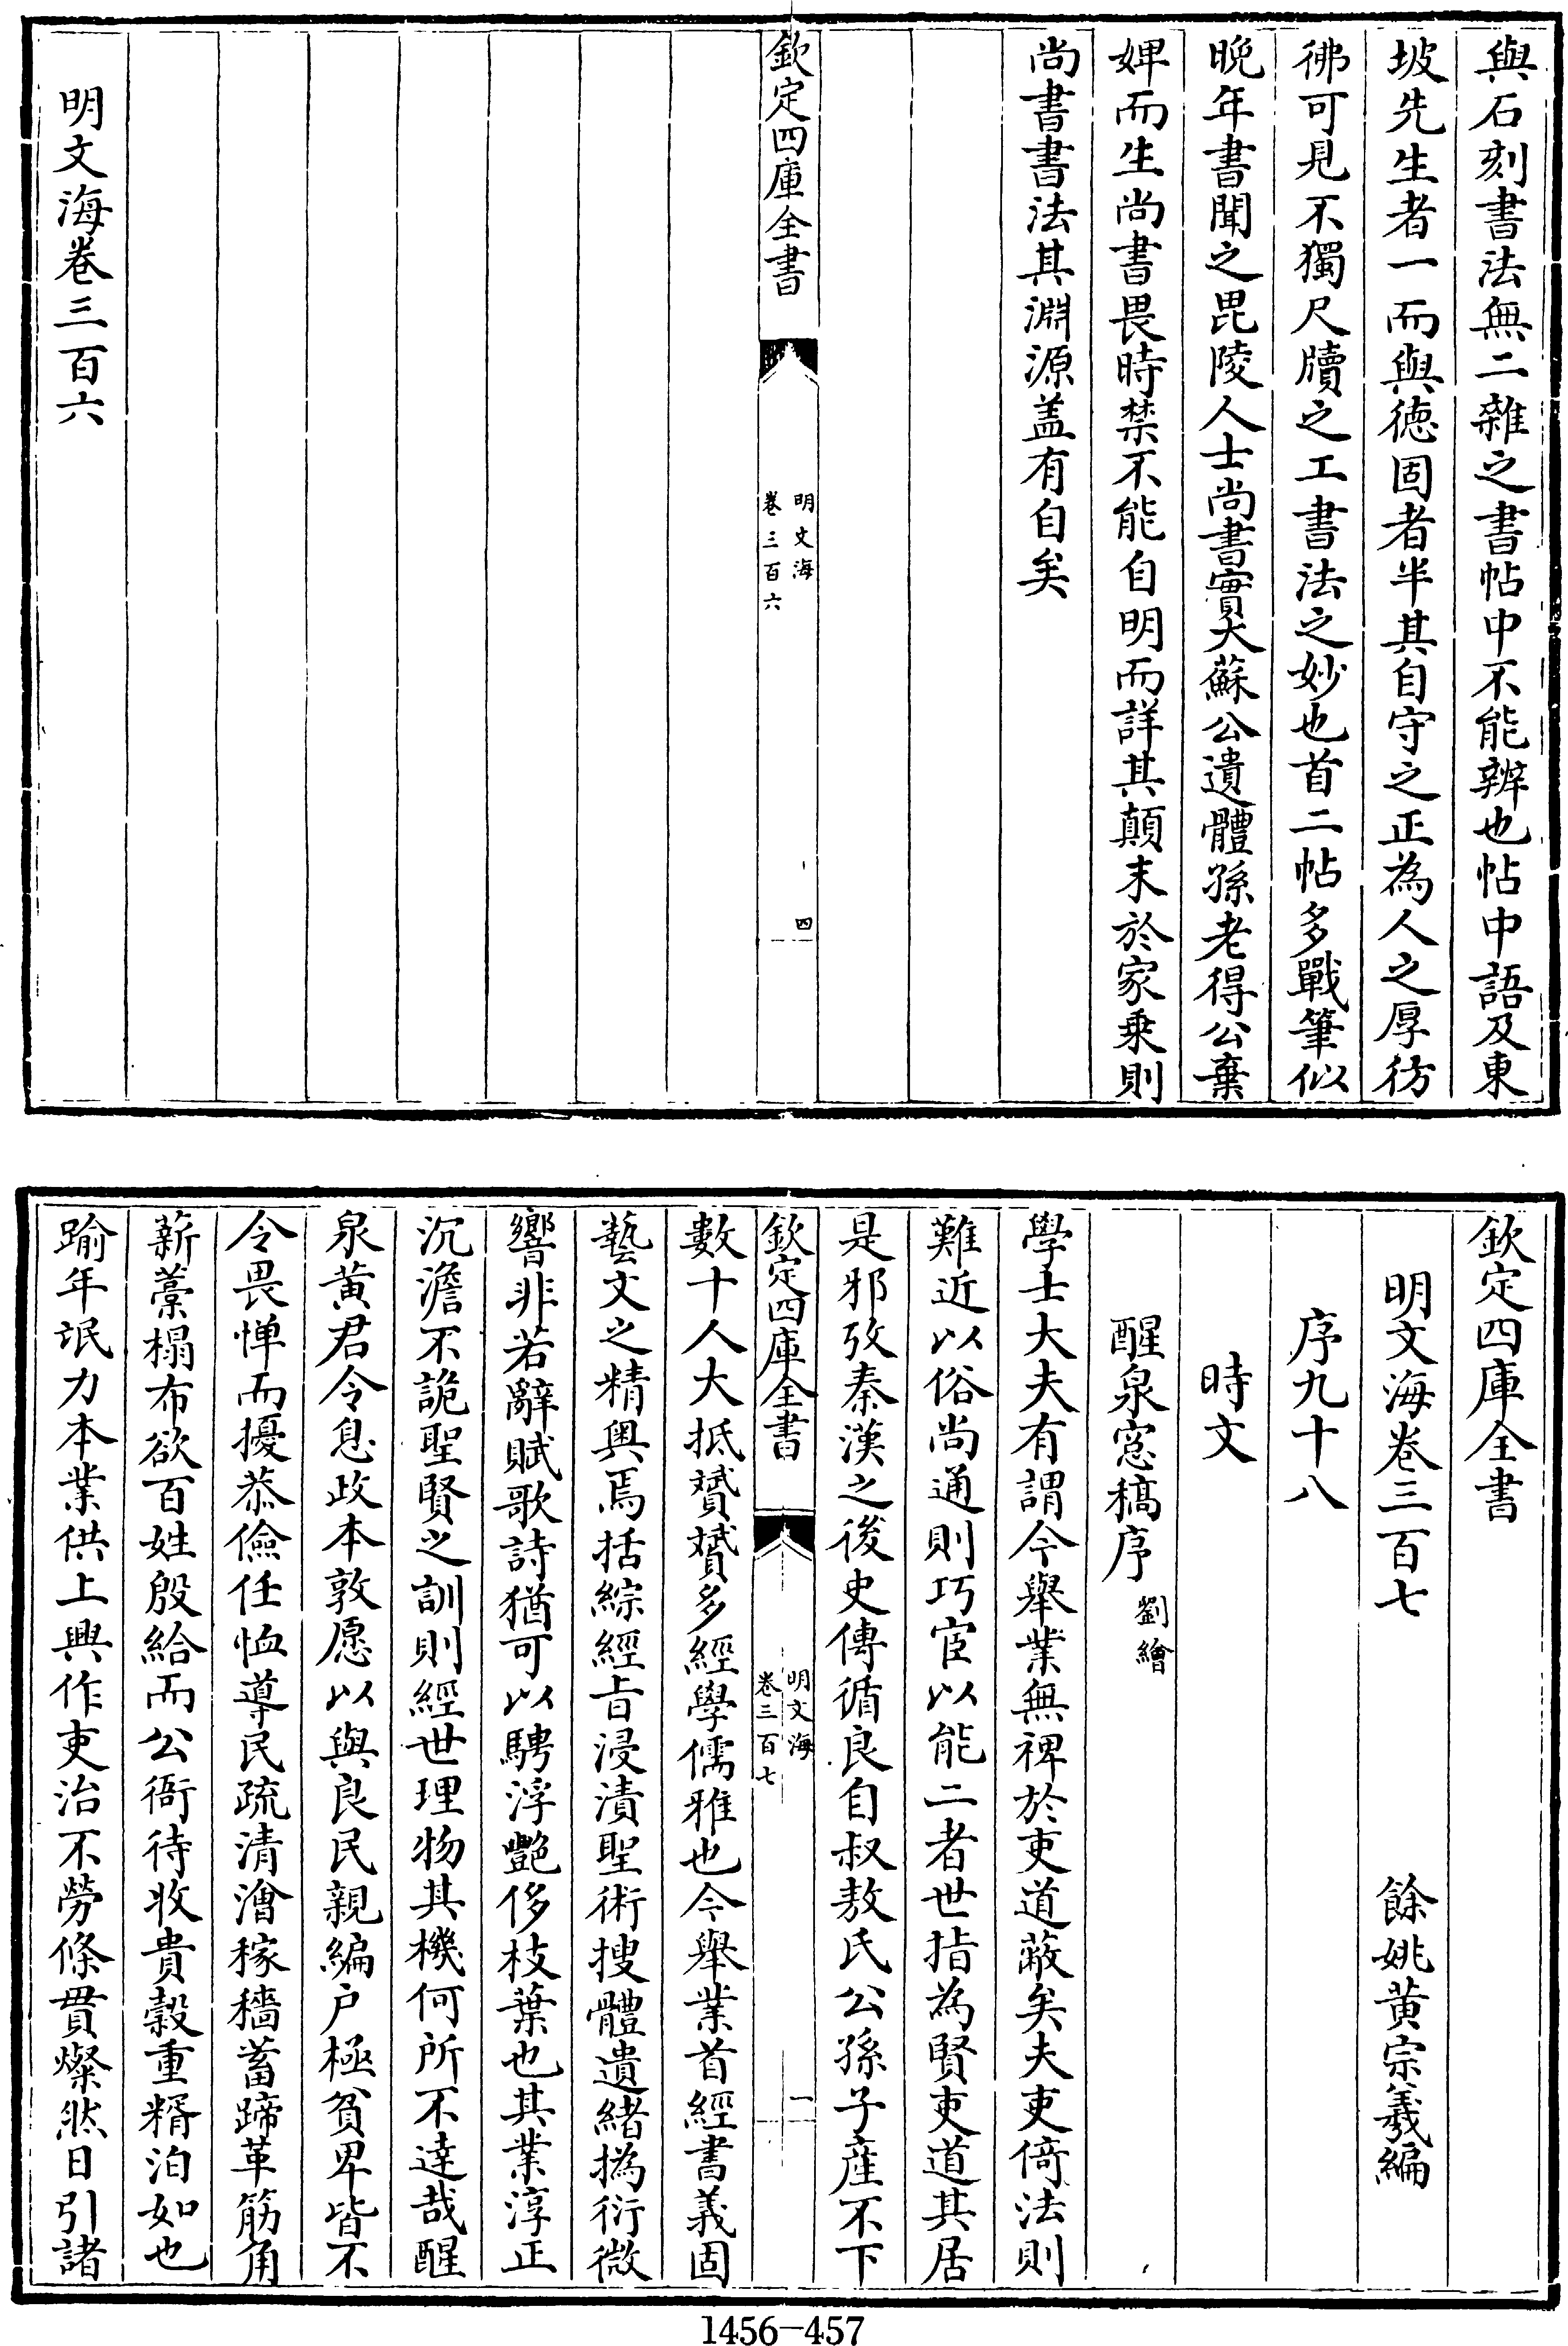 與石刻書法無二雜之書帖中不能辨也帖中語及東
坡先生者一而與徳固者半其自守之正為人之厚彷
彿可見不獨尺牘之工書法之妙也首二帖多戰筆似
晚年書聞之毘陵人士尚書實大蘇公遺體孫老得公棄
婢而生尚書畏時禁不能自明而詳其顛末於家乗則
尚書書法其淵源盖有自矣
欽定四庫全書
明文海
卷三百六
四
明文海卷三百六
欽定四庫全書
明文海卷三百七
餘姚黄宗羲編
序九十八
時文
醒泉窓稿序
劉繪
學士大夫有謂今舉業無裨於吏道蔽矣夫吏倚法則
難近以俗尚通則巧宦以能二者世指為賢吏道其居
是邪攷秦漢之後史傳循良自叔敖氏公孫子産不下
欽定四庫全書
明文海
卷三百七
一
數十人大抵贇贇多經學儒雅也今舉業首經書義固
藝文之精奥焉括綜經㫖浸漬聖術搜體遺緒撝衍微
響非若辭賦歌詩猶可以騁浮艷侈枝葉也其業淳正
沉澹不詭聖賢之訓則經世理物其機何所不逹哉醒
泉黄君令息政本敦愿以與良民親編户極貧卑皆不
令畏惮而擾恭儉任恤導民疏清澮稼穡蓄蹄革筋角
薪藁榻布欲百姓殷給而公衙待收貴穀重糈泊如也
踰年氓力本業供上興作吏治不勞條貫燦然日引諸
1456-457